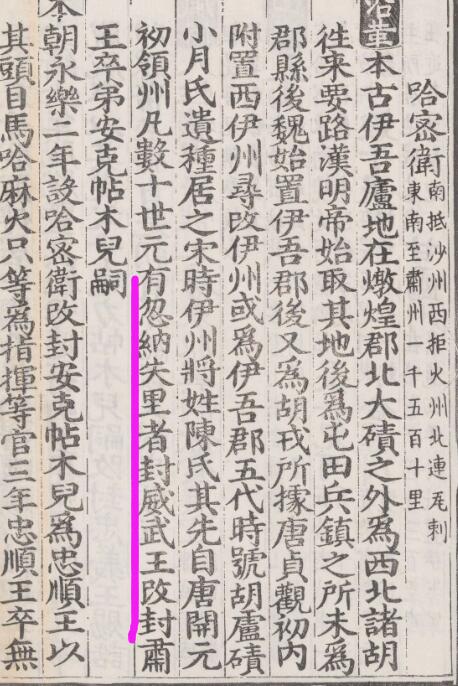 哈宻衛
南抵沙州西拒火州北連瓦剌
東南至肅州一千五百十里
沿革本古伊吾廬地在燉煌郡北大磧之外爲西北諸胡
徃来要路漢明帝始取其地後爲屯田兵鎮之所未爲
郡縣後魏始置伊吾郡後又爲胡戎所據唐貞觀初内
附置西伊州尋改伊州或爲伊吾郡五代時號胡盧磧
小月氏遺種居之宋時伊州將姓陳氏其先自唐開元
初領州凡數十世元有忽納失里者封威武王改封肅
王卒弟安克帖木兒嗣
本朝永樂二年設哈宻衛改封安克帖木兒爲忠順王以
其頭目馬哈麻火只等爲指揮等官三年忠順王卒無